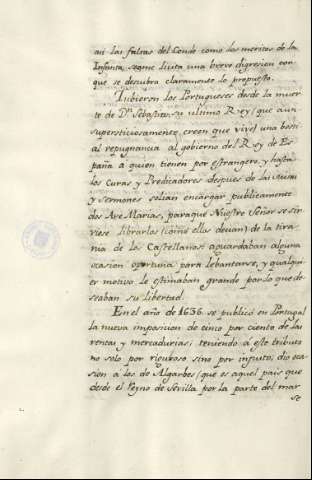 asi las faltas del Conde como los meritos de la
Infanta seame licita una breve digresion con
que se descubra claramente lo propuesto.
Tubieron los Portugueses desde la muer
te de Dn. Sebastian su ultimo Rey (que aun
supersticiosamente creen que vive) una bestial
repugnancia al gobierno del Rey de Es
paña a quien tienen por estrangero, y hasta
los Curas y Predicadores despues de las Misas
y Sermones solian encargar publicamente
dos Ave Marias, paraque Nuestro Señor se sir
viese librarlos (como ellos decian) de la tira
nia de los Castellanos: aguardaban alguna
ocasion oportuna para lebantarse, y qualqui
er motivo le estimaban grande por lo que de
seaban su libertad.
En el año de 1636. se publicó en Portugal
la nueva imposicion de cinco por ciento de las
rentas y mercadurias; teniendo a este tributo
no solo por riguroso sino por injusto; dio oca
sion a los de Algarbes (que es aquel pais que
desde el Reyno de Sevilla por la parte del mar
se